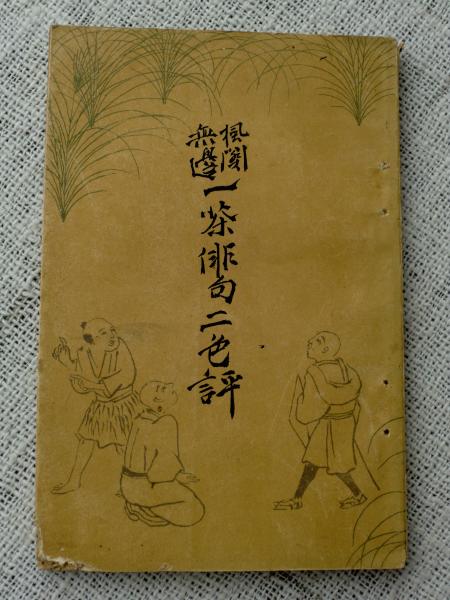 楓關
無邊
一茶俳句二色評